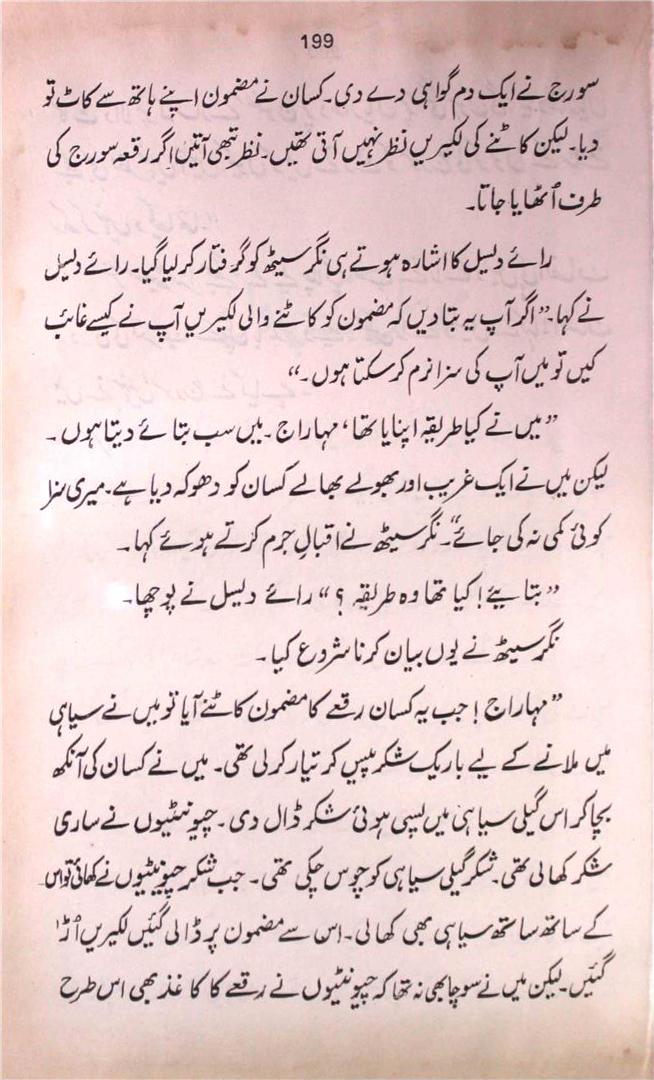 199
سورج نے ایک دم گواہی دے دی۔ کسان نے مضمون اپنے ہاتھ سے کاٹ تو
دیا۔ لیکن کاٹنے کی لکیریں نظر نہیں آتی تھیں۔ نظر تبھی آتیں اگر رقعہ سورج کی
طرف اُٹھایا جاتا۔
رائے دلیل کا اشارہ ہوتے ہی نگر سیٹھ کو گرفتار کر لیا گیا۔ رائے دلیل
نے کہا۔ "اگر آپ یہ بتا دیں کہ مضمون کو کاٹنے والی لکیریں آپ نے کیسے غائب
کیں تو میں آپ کی سزا نرم کر سکتا ہوں۔"
"میں نے کیا طریقہ اپنایا تھا، مہاراج۔ میں سب بتائے دیتا ہوں۔
لیکن میں نے ایک غریب اور بھولے بھالے کسان کو دھوکہ دیا ہے۔ میری سزا
کوئی کمی نہ کی جائے"۔ نگر سیٹھ نے اقبالِ جرم کرتے ہوئے کہا۔
"بتایئے! کیا تھا وہ طریقہ؟" رائے دلیل نے پوچھا۔
نگر سیٹھ نے یوں بیان کرنا شروع کیا۔
"مہاراج! جب یہ کسان رقعے کا مضمون کاٹنے آیا تو میں نے سیاہی
میں ملانے کے لیے باریک شکر پیس کر تیار کر لی تھی۔ میں نے کسان کی آنکھ
بچا کر اس گیلی سیاہی میں پسی ہوئی شکر ڈال دی۔ چیونٹیوں نے ساری
شکر کھا لی تھی۔ شکر گیلی سیاہی کو چوس چکی تھی۔ جب شکر چیونٹیوں نے کھائی تو اس
کے ساتھ ساتھ سیاہی بھی کھا لی۔ اس سے مضمون پر ڈالی گئیں لکیریں اُڑ
گئیں۔ لیکن میں نے سوچا بھی نہ تھا کہ چیونٹیوں نے رقعے کا کاغذ بھی اس طرح